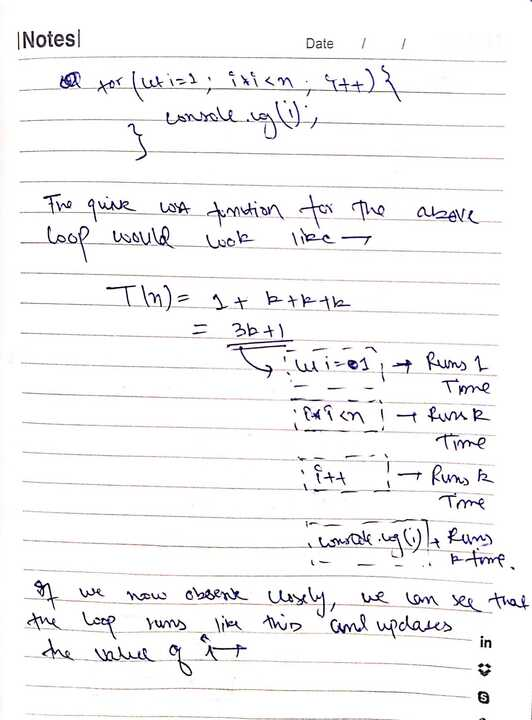 |Notes|
Date / /
for (let i=1 ; i*i<n ; i++) {
console.log(i);
}
The quick cost function for the above
loop would look like →
T(n) = 1 + k+k+k
= 3k+1
let i=1 → Runs 1
Time
i*i<n → Runs k
Time
i++ → Runs k
Time
console.log(i) → Runs
k time.
If we now observe closely, we can see that
the loop runs like this and updates
the value of i →
in